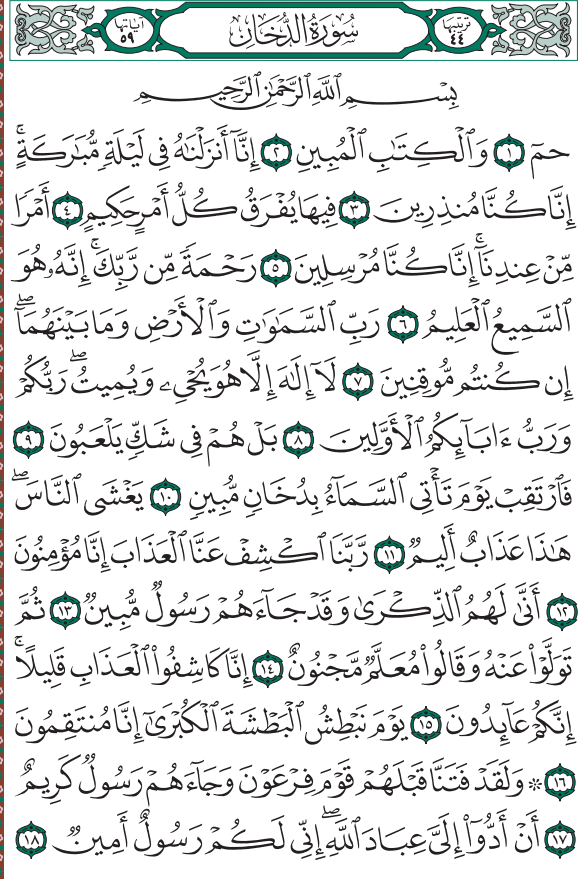 ترتيبها ٤٤ سُورَةُ الدُّخَانِ آياتها ٥٩
بِسْمِ ٱللَّهِ ٱلرَّحْمَٰنِ ٱلرَّحِيمِ
حمٓ ١ وَٱلْكِتَٰبِ ٱلْمُبِينِ ٢ إِنَّآ أَنزَلْنَٰهُ فِى لَيْلَةٍ مُّبَٰرَكَةٍۚ
إِنَّا كُنَّا مُنذِرِينَ ٣ فِيهَا يُفْرَقُ كُلُّ أَمْرٍ حَكِيمٍ ٤ أَمْرًا
مِّنْ عِندِنَآۚ إِنَّا كُنَّا مُرْسِلِينَ ٥ رَحْمَةً مِّن رَّبِّكَۚ إِنَّهُۥ هُوَ
ٱلسَّمِيعُ ٱلْعَلِيمُ ٦ رَبِّ ٱلسَّمَٰوَٰتِ وَٱلْأَرْضِ وَمَا بَيْنَهُمَآۖ
إِن كُنتُم مُّوقِنِينَ ٧ لَآ إِلَٰهَ إِلَّا هُوَ يُحْىِۦ وَيُمِيتُۖ رَبُّكُمْ
وَرَبُّ ءَابَآئِكُمُ ٱلْأَوَّلِينَ ٨ بَلْ هُمْ فِى شَكٍّ يَلْعَبُونَ ٩
فَٱرْتَقِبْ يَوْمَ تَأْتِى ٱلسَّمَآءُ بِدُخَانٍ مُّبِينٍ ١٠ يَغْشَى ٱلنَّاسَۖ
هَٰذَا عَذَابٌ أَلِيمٌ ١١ رَّبَّنَا ٱكْشِفْ عَنَّا ٱلْعَذَابَ إِنَّا مُؤْمِنُونَ
١٢ أَنَّىٰ لَهُمُ ٱلذِّكْرَىٰ وَقَدْ جَآءَهُمْ رَسُولٌ مُّبِينٌ ١٣ ثُمَّ
تَوَلَّوْا۟ عَنْهُ وَقَالُوا۟ مُعَلَّمٌ مَّجْنُونٌ ١٤ إِنَّا كَاشِفُوا۟ ٱلْعَذَابِ قَلِيلًاۚ
إِنَّكُمْ عَآئِدُونَ ١٥ يَوْمَ نَبْطِشُ ٱلْبَطْشَةَ ٱلْكُبْرَىٰٓ إِنَّا مُنتَقِمُونَ
١٦ ۞ وَلَقَدْ فَتَنَّا قَبْلَهُمْ قَوْمَ فِرْعَوْنَ وَجَآءَهُمْ رَسُولٌ كَرِيمٌ
١٧ أَنْ أَدُّوٓا۟ إِلَىَّ عِبَادَ ٱللَّهِۖ إِنِّى لَكُمْ رَسُولٌ أَمِينٌ ١٨